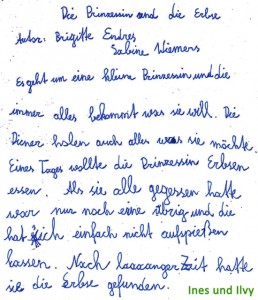 Die Prinzessin und die Erbse
Autor: Brigitte Endres
Sabine Wiemers
Es geht um eine kleine Prinzessin und die
immer alles bekommt was sie will. Die
Diener holen auch alles was sie möchte.
Eines Tages wollte die Prinzessin Erbsen
essen. Als sie alle gegessen hatte
war nur noch eine übrig und die
hat sich einfach nicht aufspießen
lassen. Nach laaaanger Zeit hatte
sie die Erbse gefunden.
Ines und Ilvy